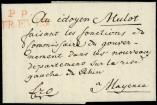 P.P.
TRÈ
Au citoyen Mulot
faisant les fonctions de
Commissaire du gouver-
nement dans les nouveaux
departemens sur la rive
gauche du Rhin
Mayence